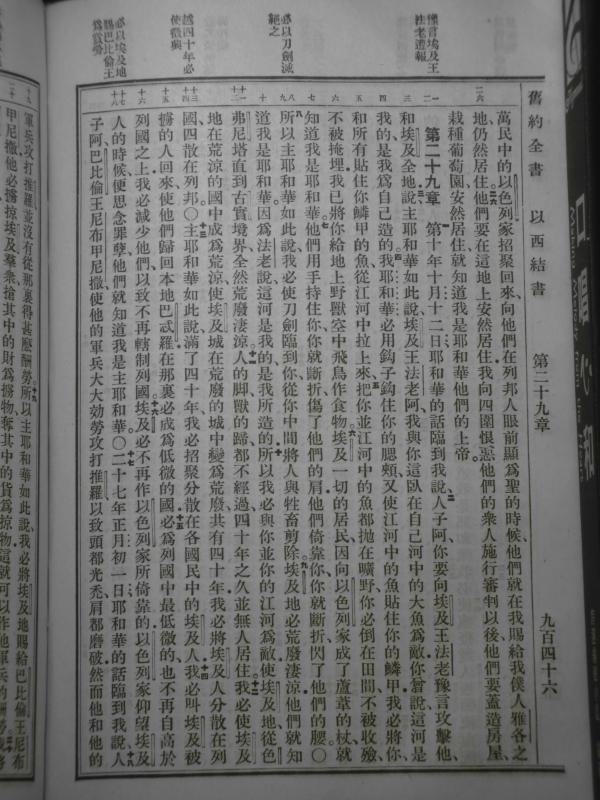 舊約全書　以西結書　第二十九章　九百四十六
豫言埃及王
法老遭報
必以刀劍滅
絕之
越四十年必
使復興
必以埃及地
賜巴比倫王
爲賞勞
萬民中的以色列家招聚回來向他們在列邦人眼前顯爲聖的時候他們就在我賜給我僕人雅各之
地仍然居住他們要在這地上安然居住我向四圍恨惡他們的衆人施行審判以後他們要蓋造房屋
栽種葡萄園安然居住就知道我是耶和華他們的上帝
第二十九章　第十年十月十二日耶和華的話臨到我說人子阿你要向埃及王法老豫言攻擊他
和埃及全地說主耶和華如此說埃及王法老阿我與你這臥在自己河中的大魚爲敵你曾說這河是
我的是我爲自己造的我耶和華必用鈎子鈎住你的腮頰又使江河中的魚貼住你的鱗甲我必將你
和所有貼住你鱗甲的魚從江河中拉上來把你並江河中的魚都抛在曠野你必倒在田間不被收殮
不被掩埋我已將你給地上野獸空中飛鳥作食物埃及一切的居民因向以色列家成了蘆葦的杖就
知道我是耶和華他們用手持住你你就斷折傷了他們的肩他們倚靠你你就斷折閃了他們的腰〇
所以主耶和華如此說我必使刀劍臨到你從你中間將人與牲畜剪除埃及地必荒廢淒涼他們就知
道我是耶和華因爲法老說這河是我的是我所造的所以我必與你並你的江河爲敵使埃及地從色
弗尼塔直到古實境界全然荒廢淒涼人的脚獸的蹄都不經過四十年之久並無人居住我必使埃及
地在荒涼的國中成爲荒涼使埃及城在荒廢的城中變爲荒廢共有四十年我必將埃及人分散在列
國四散在列邦〇主耶和華如此說滿了四十年我必招聚分散在各國民中的埃及人我必叫埃及被
擄的人回來使他們歸回本地巴忒羅在那裏必成爲低微的國必爲列國中最低微的也不再自高於
列國之上我必減少他們以致不再轄制列國埃及必不再作以色列家所倚靠的以色列家仰望埃及
人的時候便思念罪孽他們就知道我是主耶和華〇二十七年正月初一日耶和華的話臨到我說人
子阿巴比倫王尼布甲尼撒使他的軍兵大大効勞攻打推羅以致頭都光禿肩都磨破然而他和他的
軍兵攻打推羅並沒有從那裏得甚麼酬勞所以主耶和華如此說我必將埃及地賜給巴比倫王尼布
甲尼撒他必擄掠埃及羣衆搶其中的財爲擄物奪其中的貨爲掠物這就可以作他軍兵的酬勞我將
口唱心和